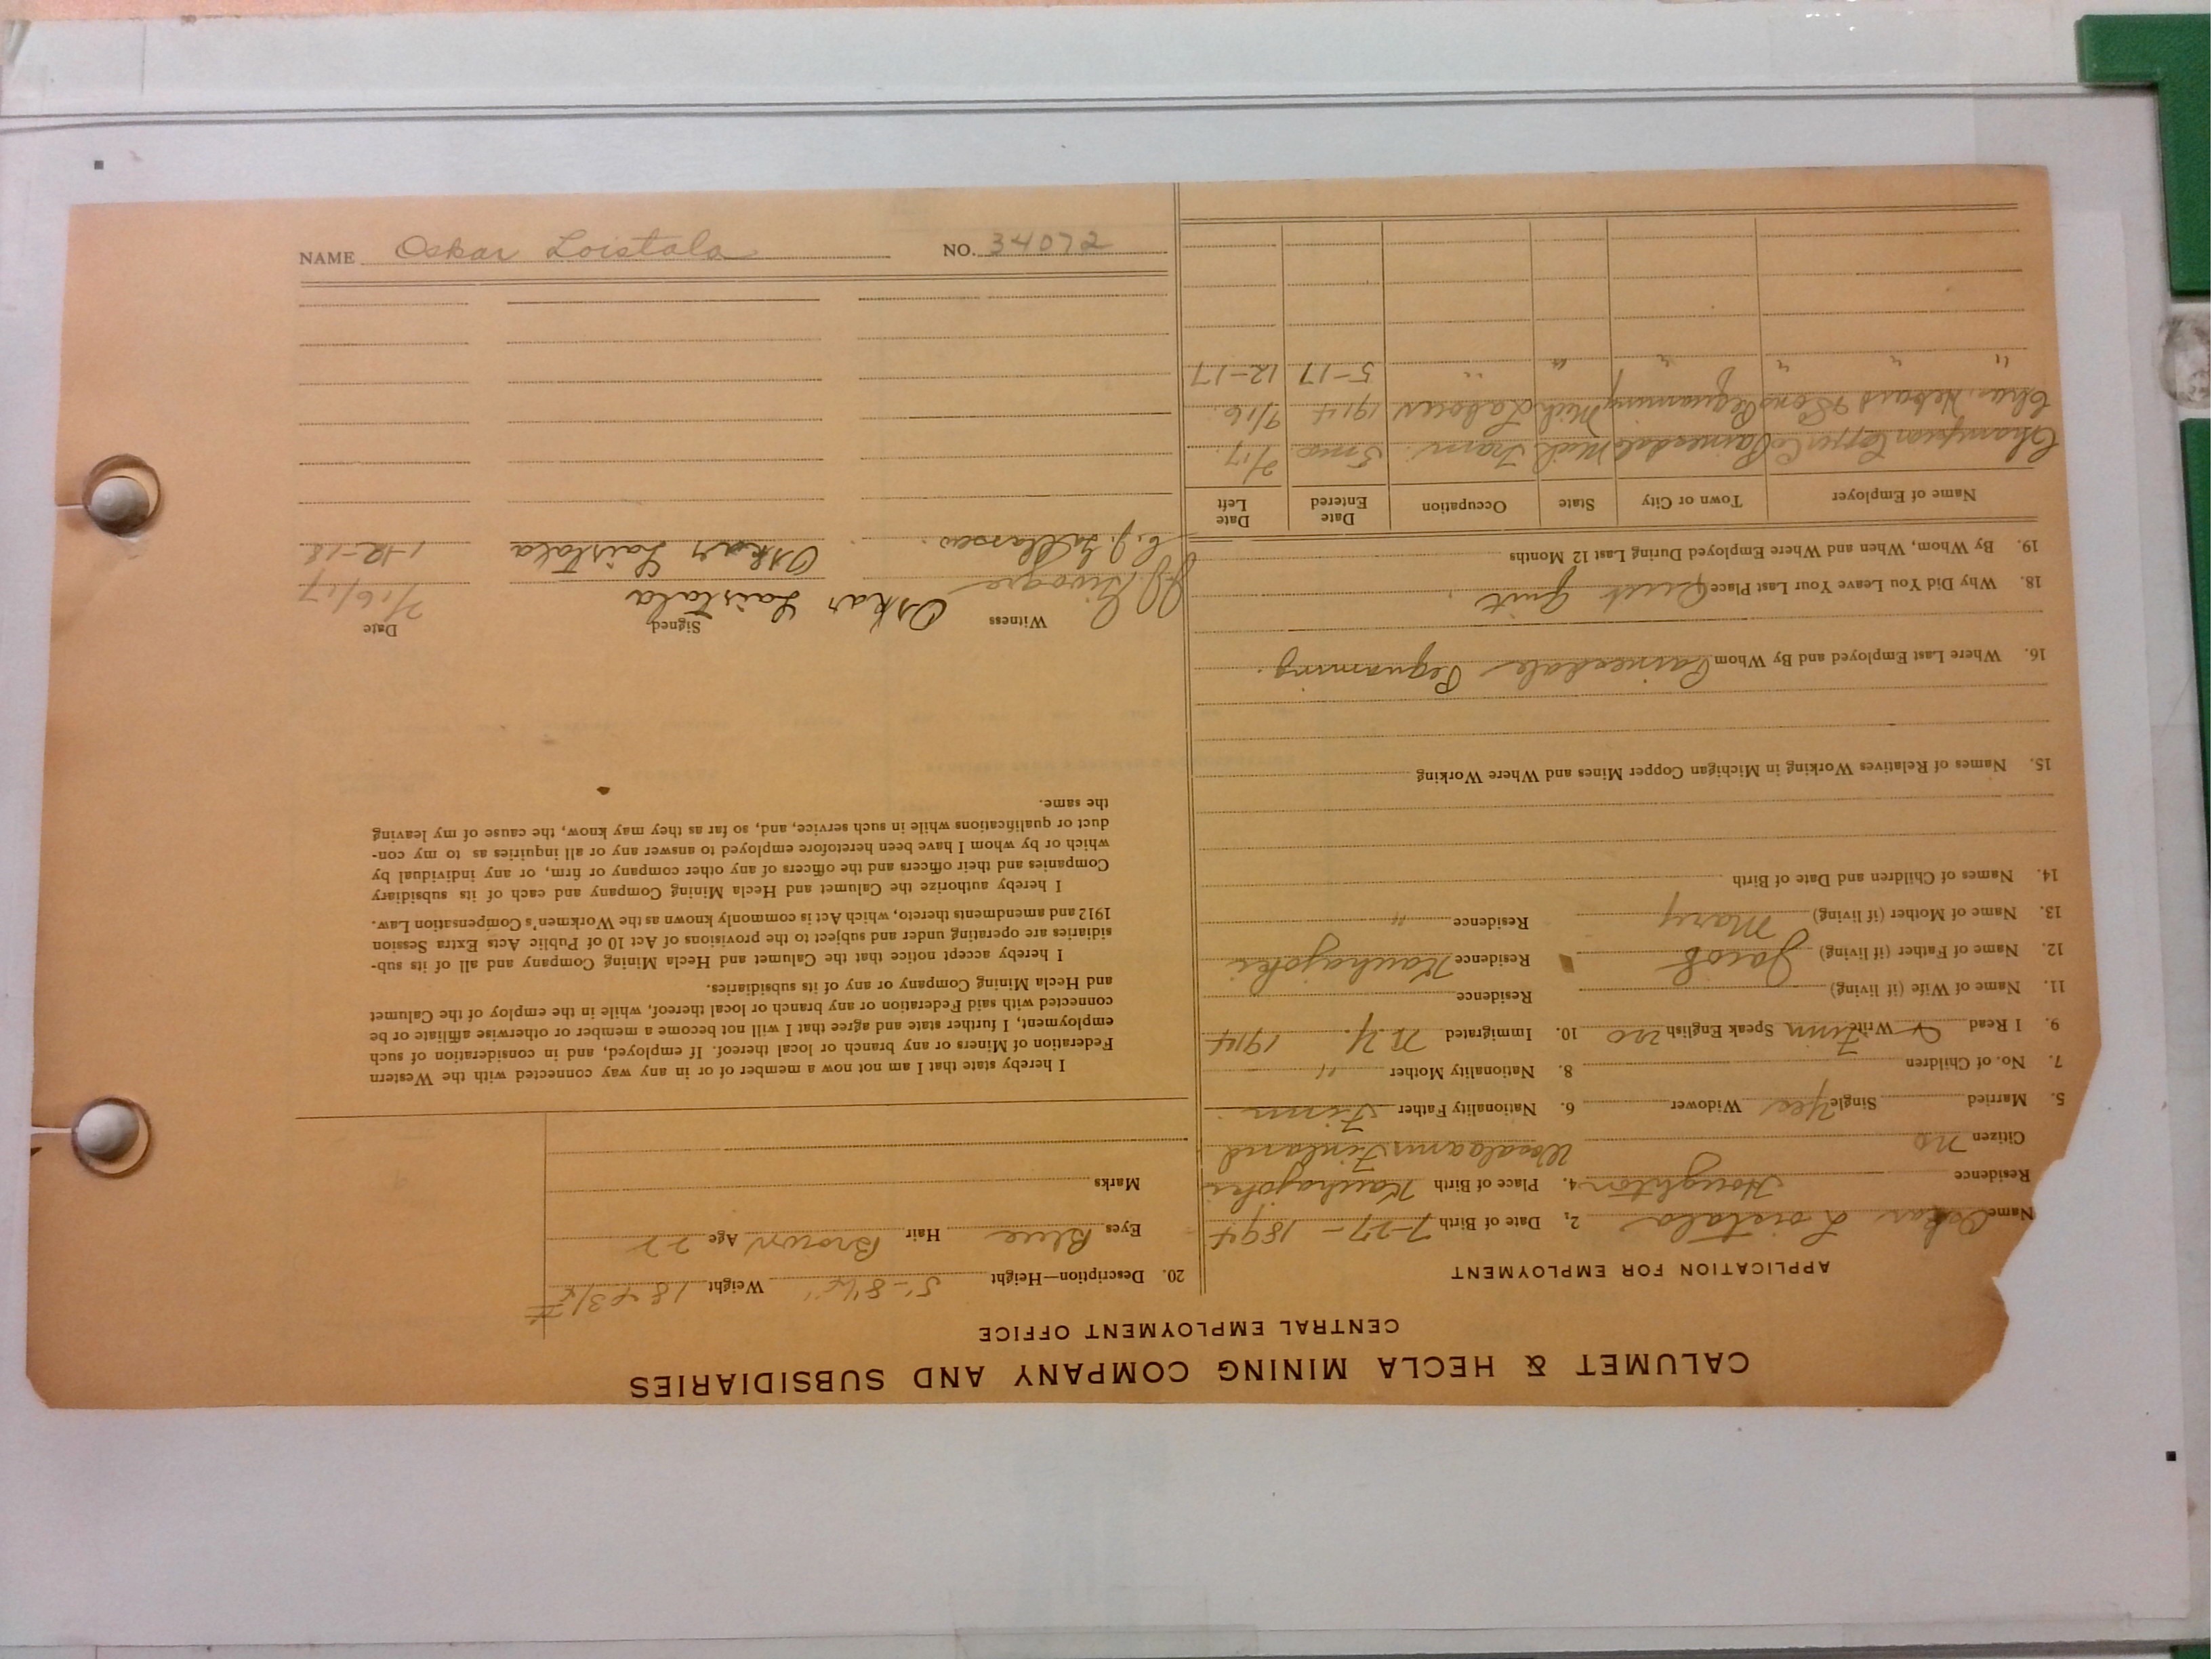 CALUMET & HECLA MINING COMPANY AND SUBSIDIARIES
CENTRAL EMPLOYMENT OFFICE
APPLICATION FOR EMPLOYMENT
Name Oskar Loistala 2. Date of Birth 7-27-1894
Residence Houghton 4. Place of Birth Kauhajoki
Citizen no Finland
5. Married Single Yes Widower 6. Nationality Father Finn
7. No. of Children 8. Nationality Mother "
9. I Read Write Finn Speak English no 10. Immigrated N.Y. 1914
11. Name of Wife (if living) Residence
12. Name of Father (if living) Jacob Residence Kauhajoki
13. Name of Mother (if living) Mary Residence "
14. Names of Children and Date of Birth
15. Names of Relatives Working in Michigan Copper Mines and Where Working
16. Where Last Employed and By Whom Painesdale Pequaming.
18. Why Did You Leave Your Last Place Quit Quit
19. By Whom, When and Where Employed During Last 12 Months
Name of Employer Town or City State Occupation Date Entered Date Left
Champion Copper Co Painesdale Mich Tram. 5 mo. 2/17.
Chas. Hebard & Sons Pequaming Mich Laborer 1914 9/16.
" " " " " " 5-17 12-17
20. Description—Height 5'-8 1/4" Weight
Eyes Blue Hair Brown Age 22
Marks
I hereby state that I am not now a member of or in any way connected with the Western
Federation of Miners or any branch or local thereof. If employed, and in consideration of such
employment, I further state and agree that I will not become a member or otherwise affiliate or be
connected with said Federation or any branch or local thereof, while in the employ of the Calumet
and Hecla Mining Company or any of its subsidiaries.
I hereby accept notice that the Calumet and Hecla Mining Company and all of its sub-
sidiaries are operating under and subject to the provisions of Act 10 of Public Acts Extra Session
1912 and amendments thereto, which Act is commonly known as the Workmen's Compensation Law.
I hereby authorize the Calumet and Hecla Mining Company and each of its subsidiary
Companies and their officers and the officers of any other company or firm, or any individual by
which or by whom I have been heretofore employed to answer any or all inquiries as to my con-
duct or qualifications while in such service, and, so far as they may know, the cause of my leaving
the same.
Witness Signed Date
Oskar Laistala 2/16/17
Oskar Laistala 1-12-18
NAME Oskar Loistala NO. 34072